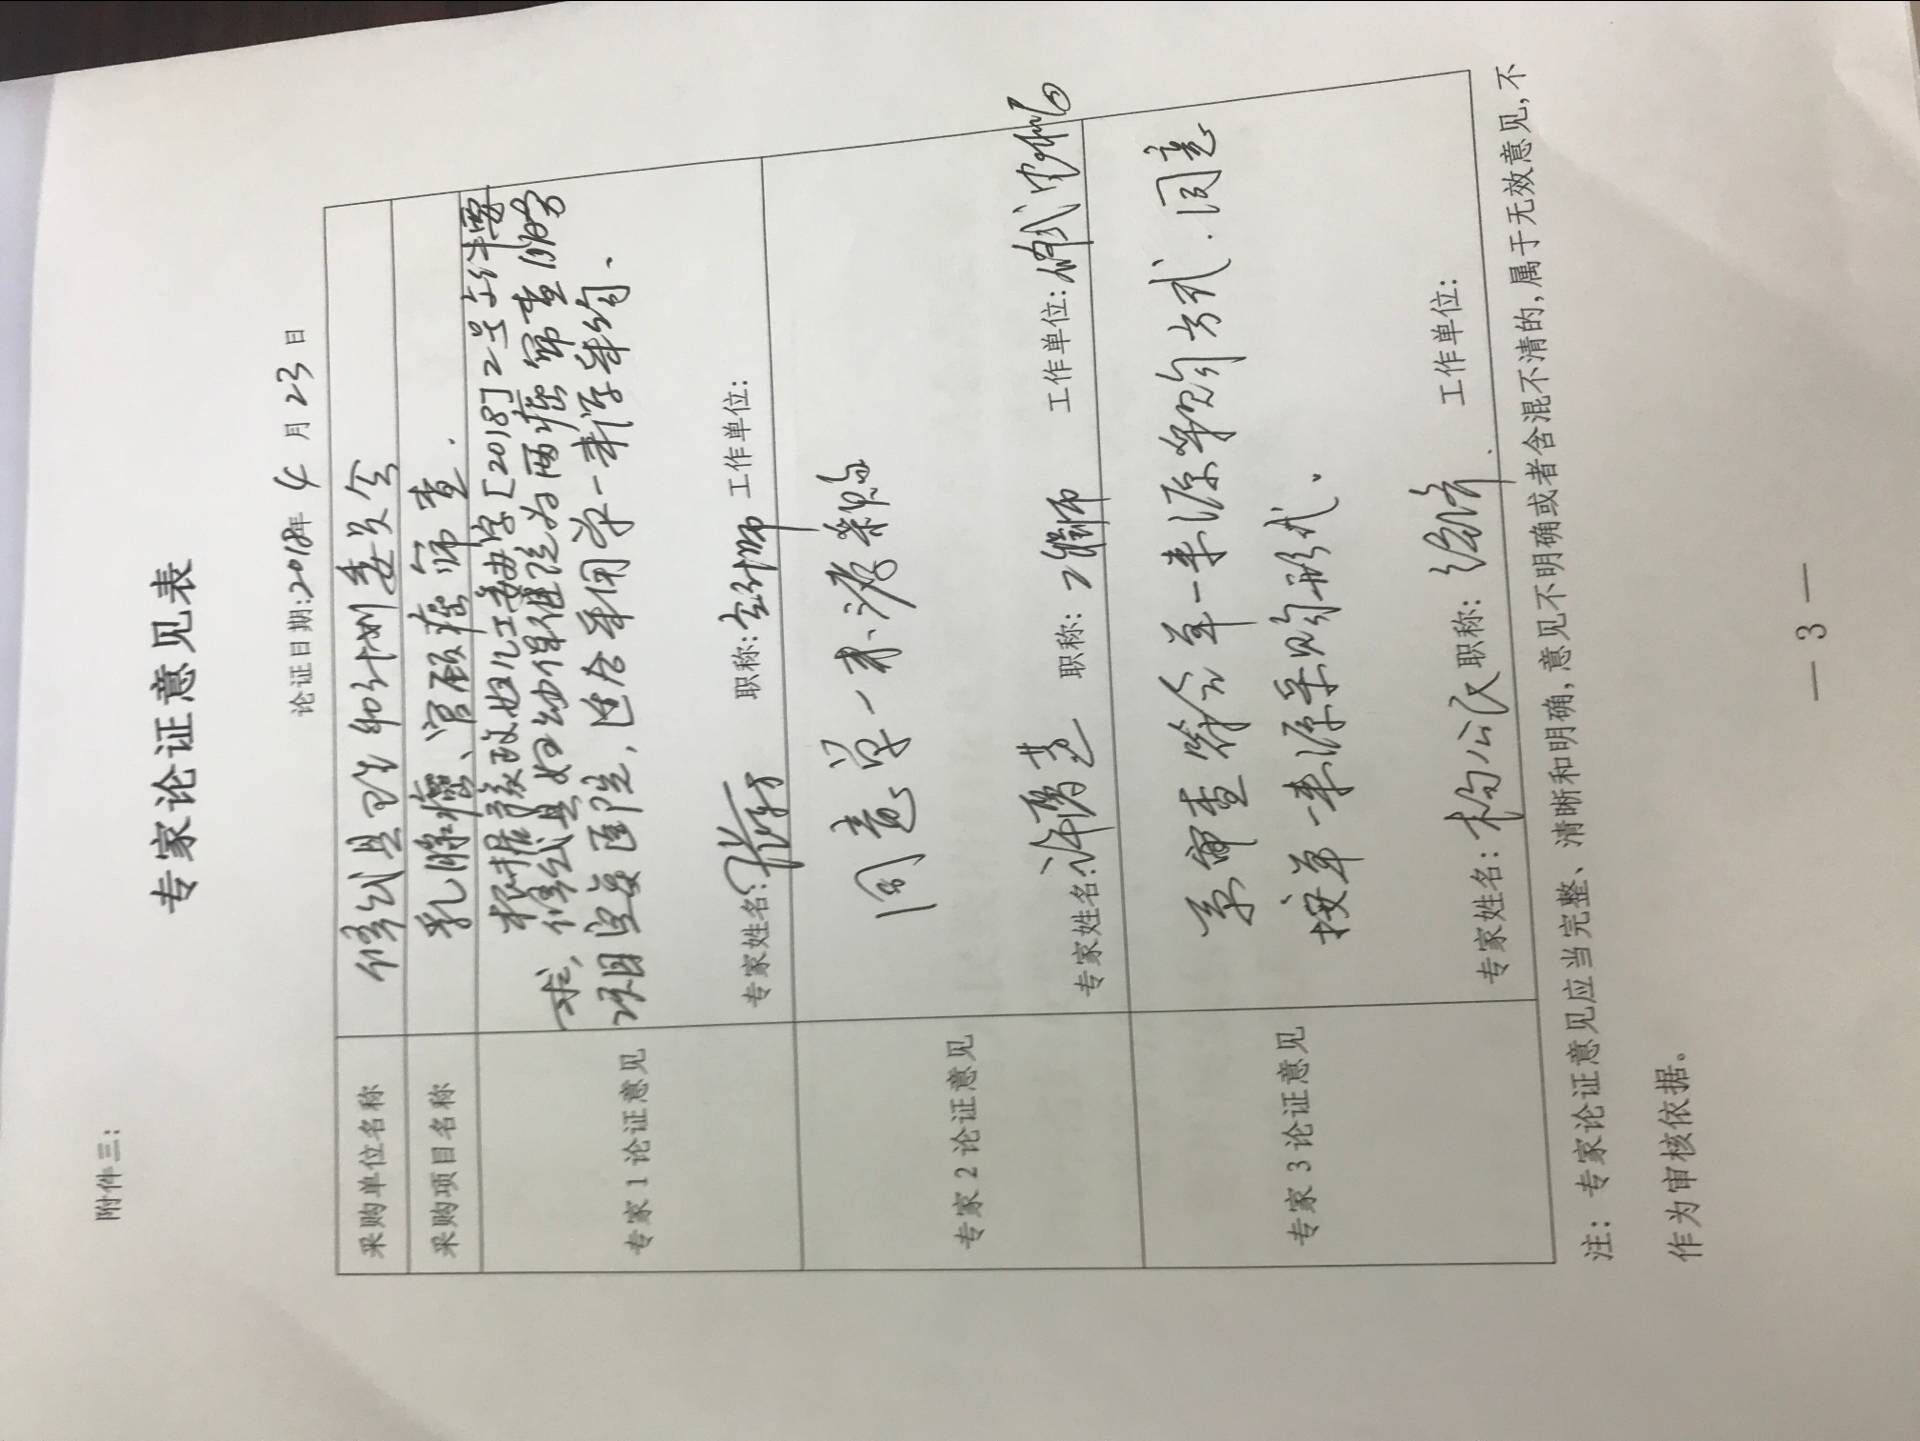 附件三：
专家论证意见表
论证日期：2018年 4 月 23 日
采购单位名称 修武县卫生和计划委员会
采购项目名称 乳腺癌、宫颈癌筛查.
专家 1 论证意见
根据 妇儿工委办字[2018]2号文件要
求, 修武县妇幼保健院为两癌筛查
项目 医院, 适合采用单一来源采购.
专家姓名： 职称： 工作单位：
专家 2 论证意见
同意单一来源采购
专家姓名： 职称：工程师 工作单位：
专家 3 论证意见
审查符合单一来源采购方式. 同意
按单一来源采购形式.
专家姓名： 职称：经济 工作单位：
注： 专家论证意见应当完整、清晰和明确，意见不明确或者含混不清的，属于无效意见，不
作为审核依据。
— 3 —